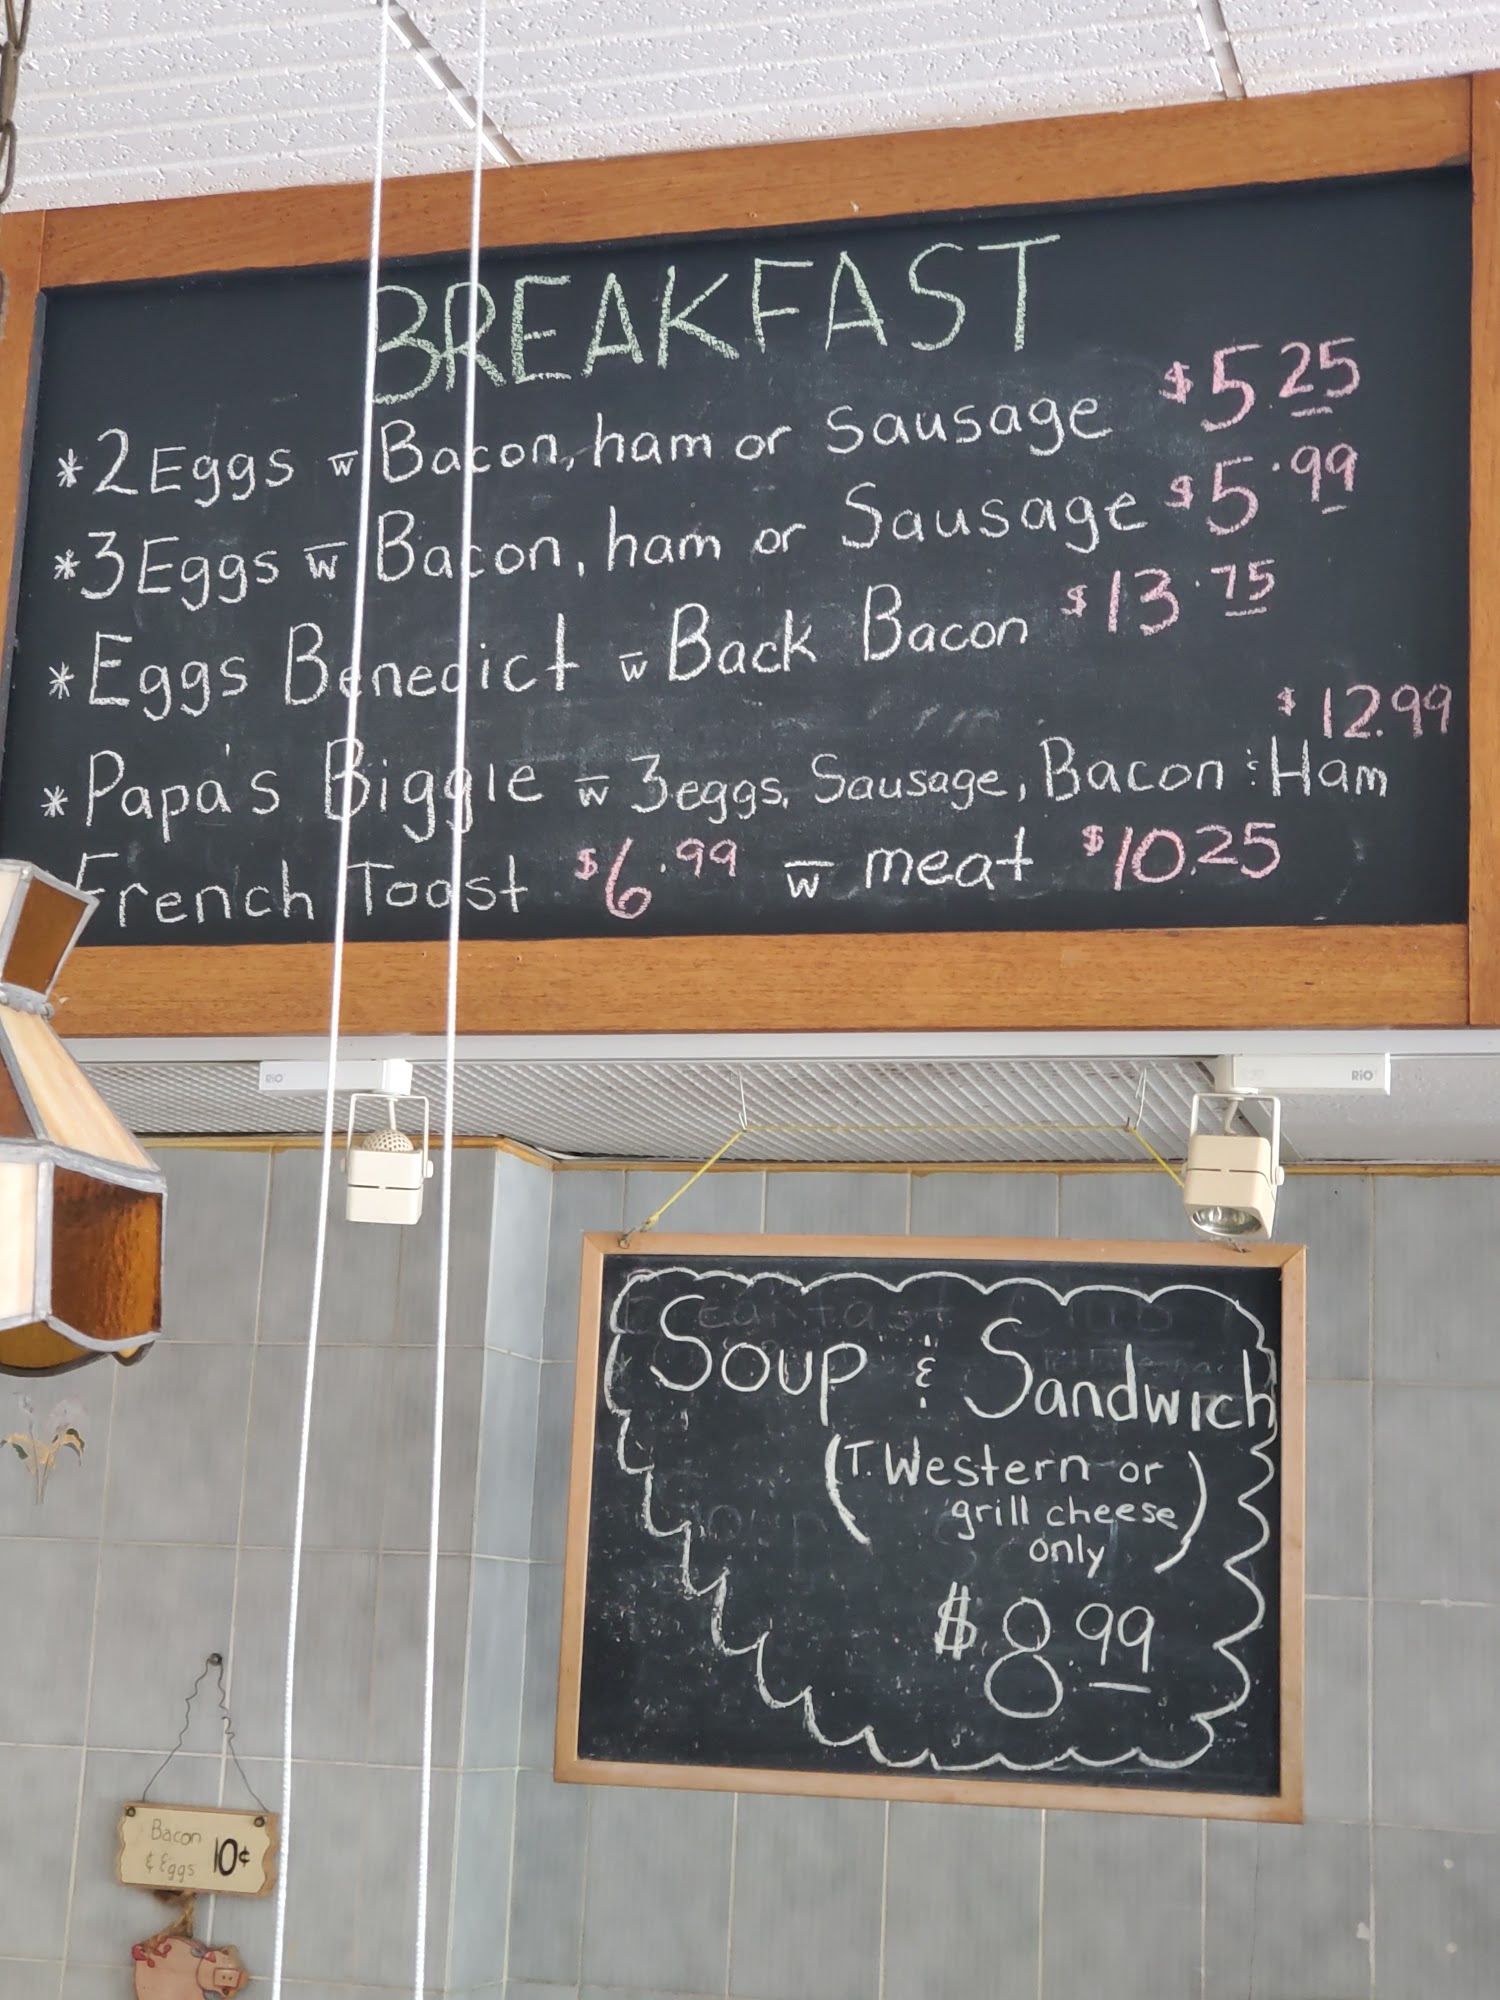 BREAKFAST
*2 Eggs w̅ Bacon, ham or Sausage $5.25
*3 Eggs w̅ Bacon, ham or Sausage $5.99
*Eggs Benedict w̅ Back Bacon $13.75
$12.99
*Papa's Biggie w̅ 3 eggs, Sausage, Bacon & Ham
French Toast $6.99 w̅ meat $10.25
RiO
RiO
Soup & Sandwich
(T. Western or
grill cheese
only)
$8.99
Bacon
& Eggs 10¢